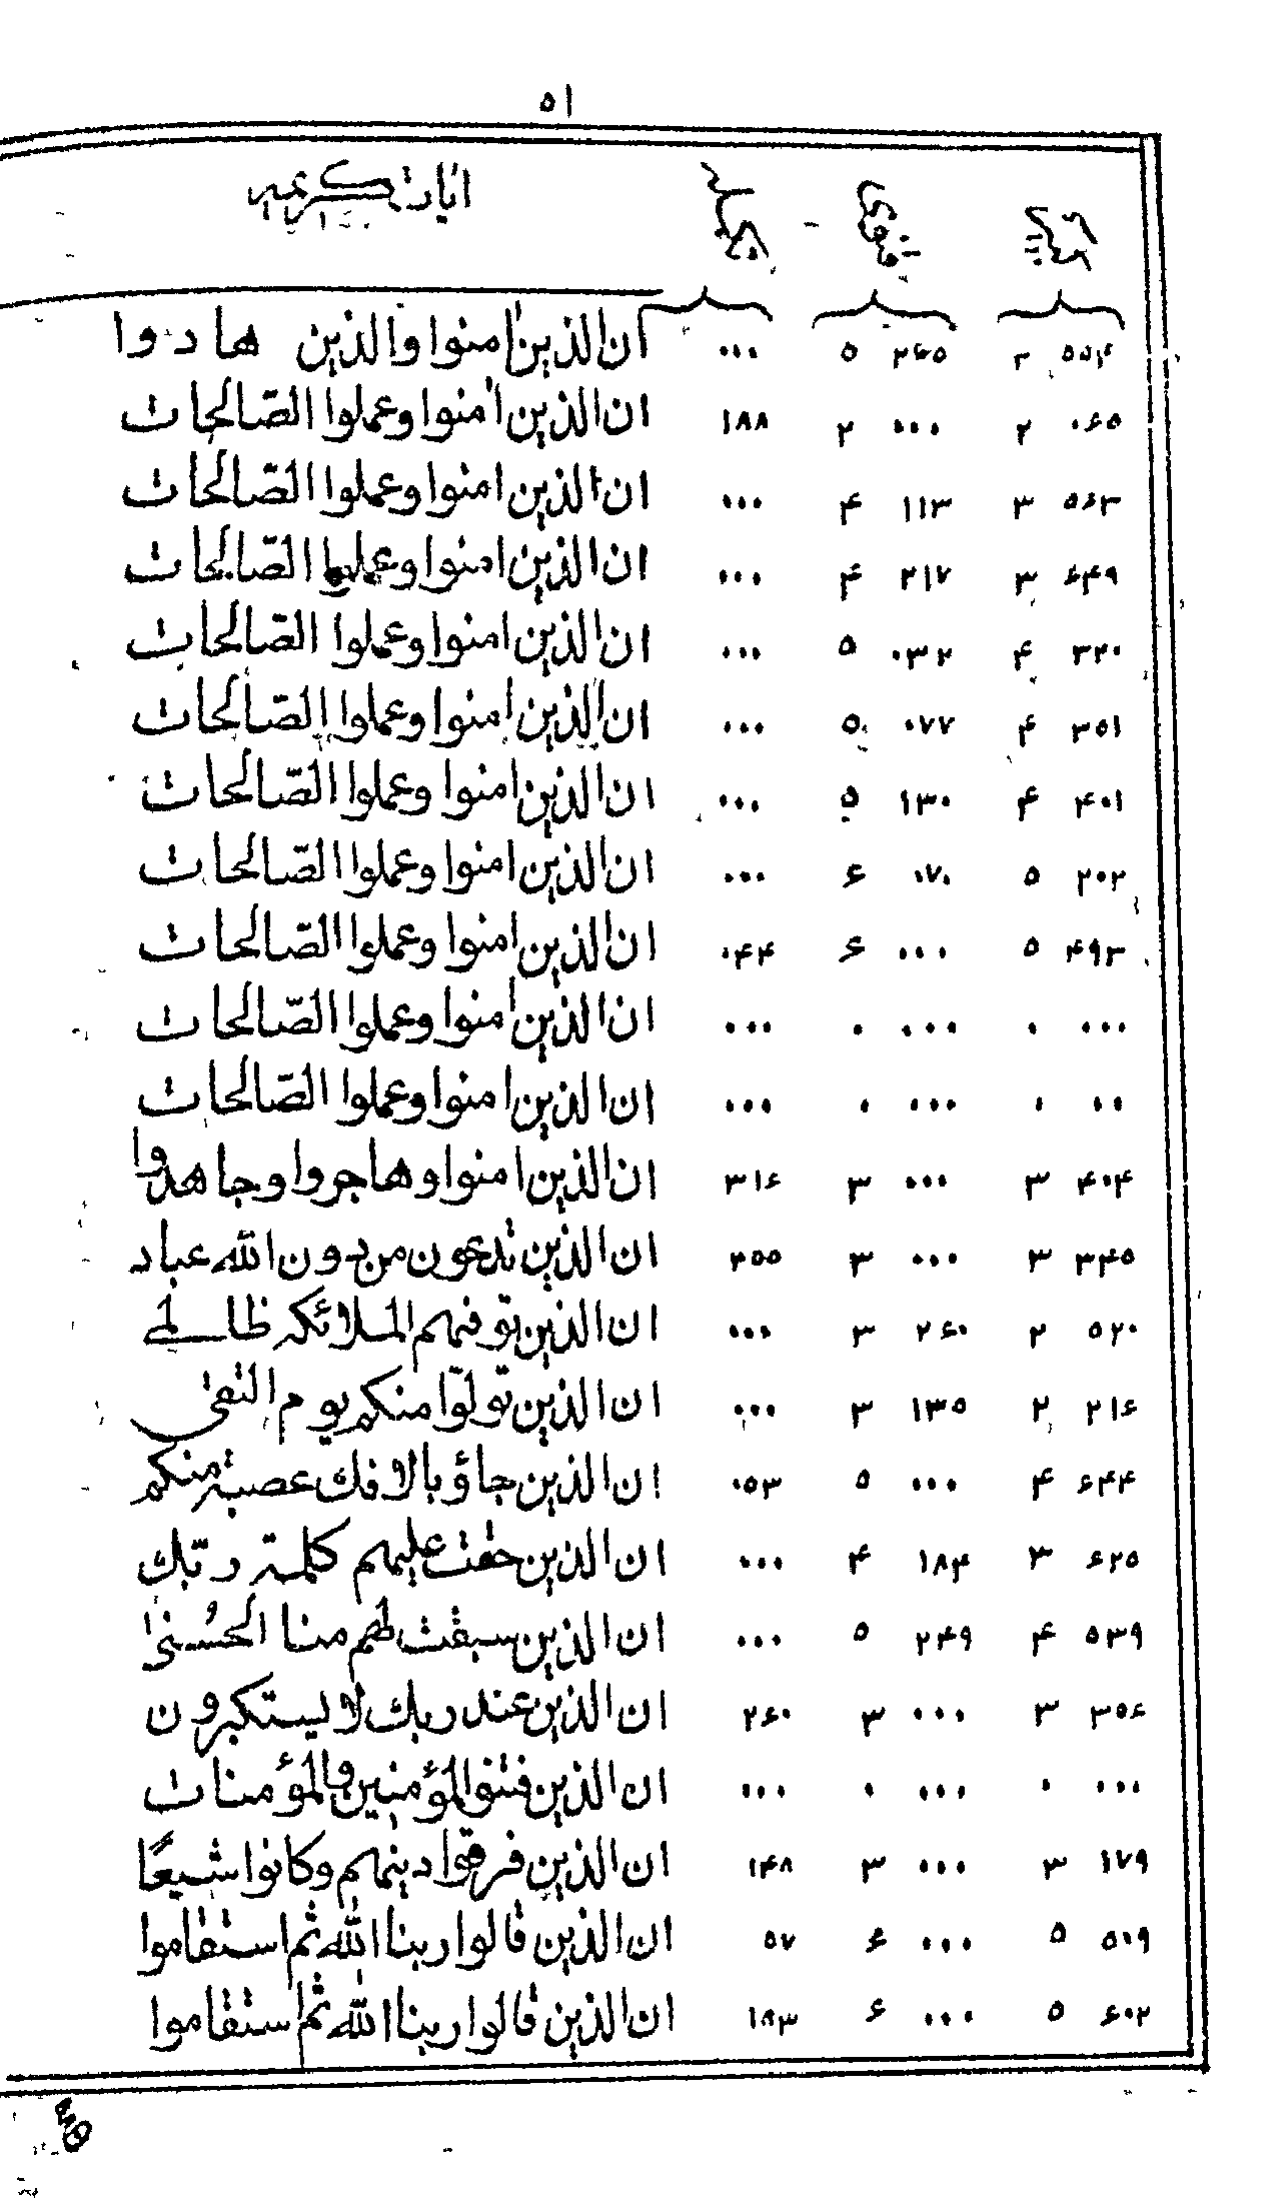 ۵۱
ایات کریمه
ان الذین امنوا والذین هادوا ... ۵ ۲۶۵
ان الذین امنوا وعملوا الصّالحات ۱۸۸ ۲ ... ۲ ۰۶۵
ان الذین امنوا وعملوا الصّالحات ... ۴ ۱۱۳ ۳ ۵۶۳
ان الذین امنوا وعملوا الصّالحات ... ۴ ۲۱۷ ۳ ۶۴۹
ان الذین امنوا وعملوا الصّالحات ... ۵ ۰۳۲ ۴ ۳۲۰
ان الذین امنوا وعملوا الصّالحات ... ۵ ۰۷۷ ۴ ۳۵۱
ان الذین امنوا وعملوا الصّالحات ... ۵ ۱۳۰ ۴ ۴۰۱
ان الذین امنوا وعملوا الصّالحات ... ۶ ۰۷۰ ۵ ۲۰۲
ان الذین امنوا وعملوا الصّالحات ۰۴۴ ۶ ... ۵ ۴۹۳
ان الذین امنوا وعملوا الصّالحات ... ۰ ... ۰ ...
ان الذین امنوا وعملوا الصّالحات ... ۰ ... ۰ ..
ان الذین امنوا وهاجروا وجاهدوا ۳۱۶ ۳ ... ۳ ۴۰۴
ان الذین تدعون من دون الله عباد ۳۵۵ ۳ ... ۳ ۳۴۵
ان الذین توفیهم الملائکه ظالمی ... ۳ ۲۶۰ ۲ ۵۲۰
ان الذین تولّوا منکم یوم التقی ... ۳ ۱۳۵ ۲ ۲۱۶
ان الذین جاؤ بالافک عصبة منکم ۰۵۳ ۵ ... ۴ ۶۴۴
ان الذین حقت علیهم کلمة ربّک ... ۴ ۱۸۴ ۳ ۶۲۵
ان الذین سبقت لهم منا الحُسنیٰ ... ۵ ۲۴۹ ۴ ۵۳۹
ان الذین عند ربک لا یستکبرون ۲۶۰ ۳ ... ۳ ۳۵۶
ان الذین فتنوا المؤمنین والمؤمنات ... ۰ ... ۰ ...
ان الذین فرقوا دینهم وکانوا شیعًا ۱۴۸ ۳ ... ۳ ۱۷۹
ان الذین قالوا ربنا الله ثم استقاموا ۵۷ ۶ ... ۵ ۵۰۹
ان الذین قالوا ربنا الله ثم استقاموا ۱۸۳ ۶ ... ۵ ۶۰۲